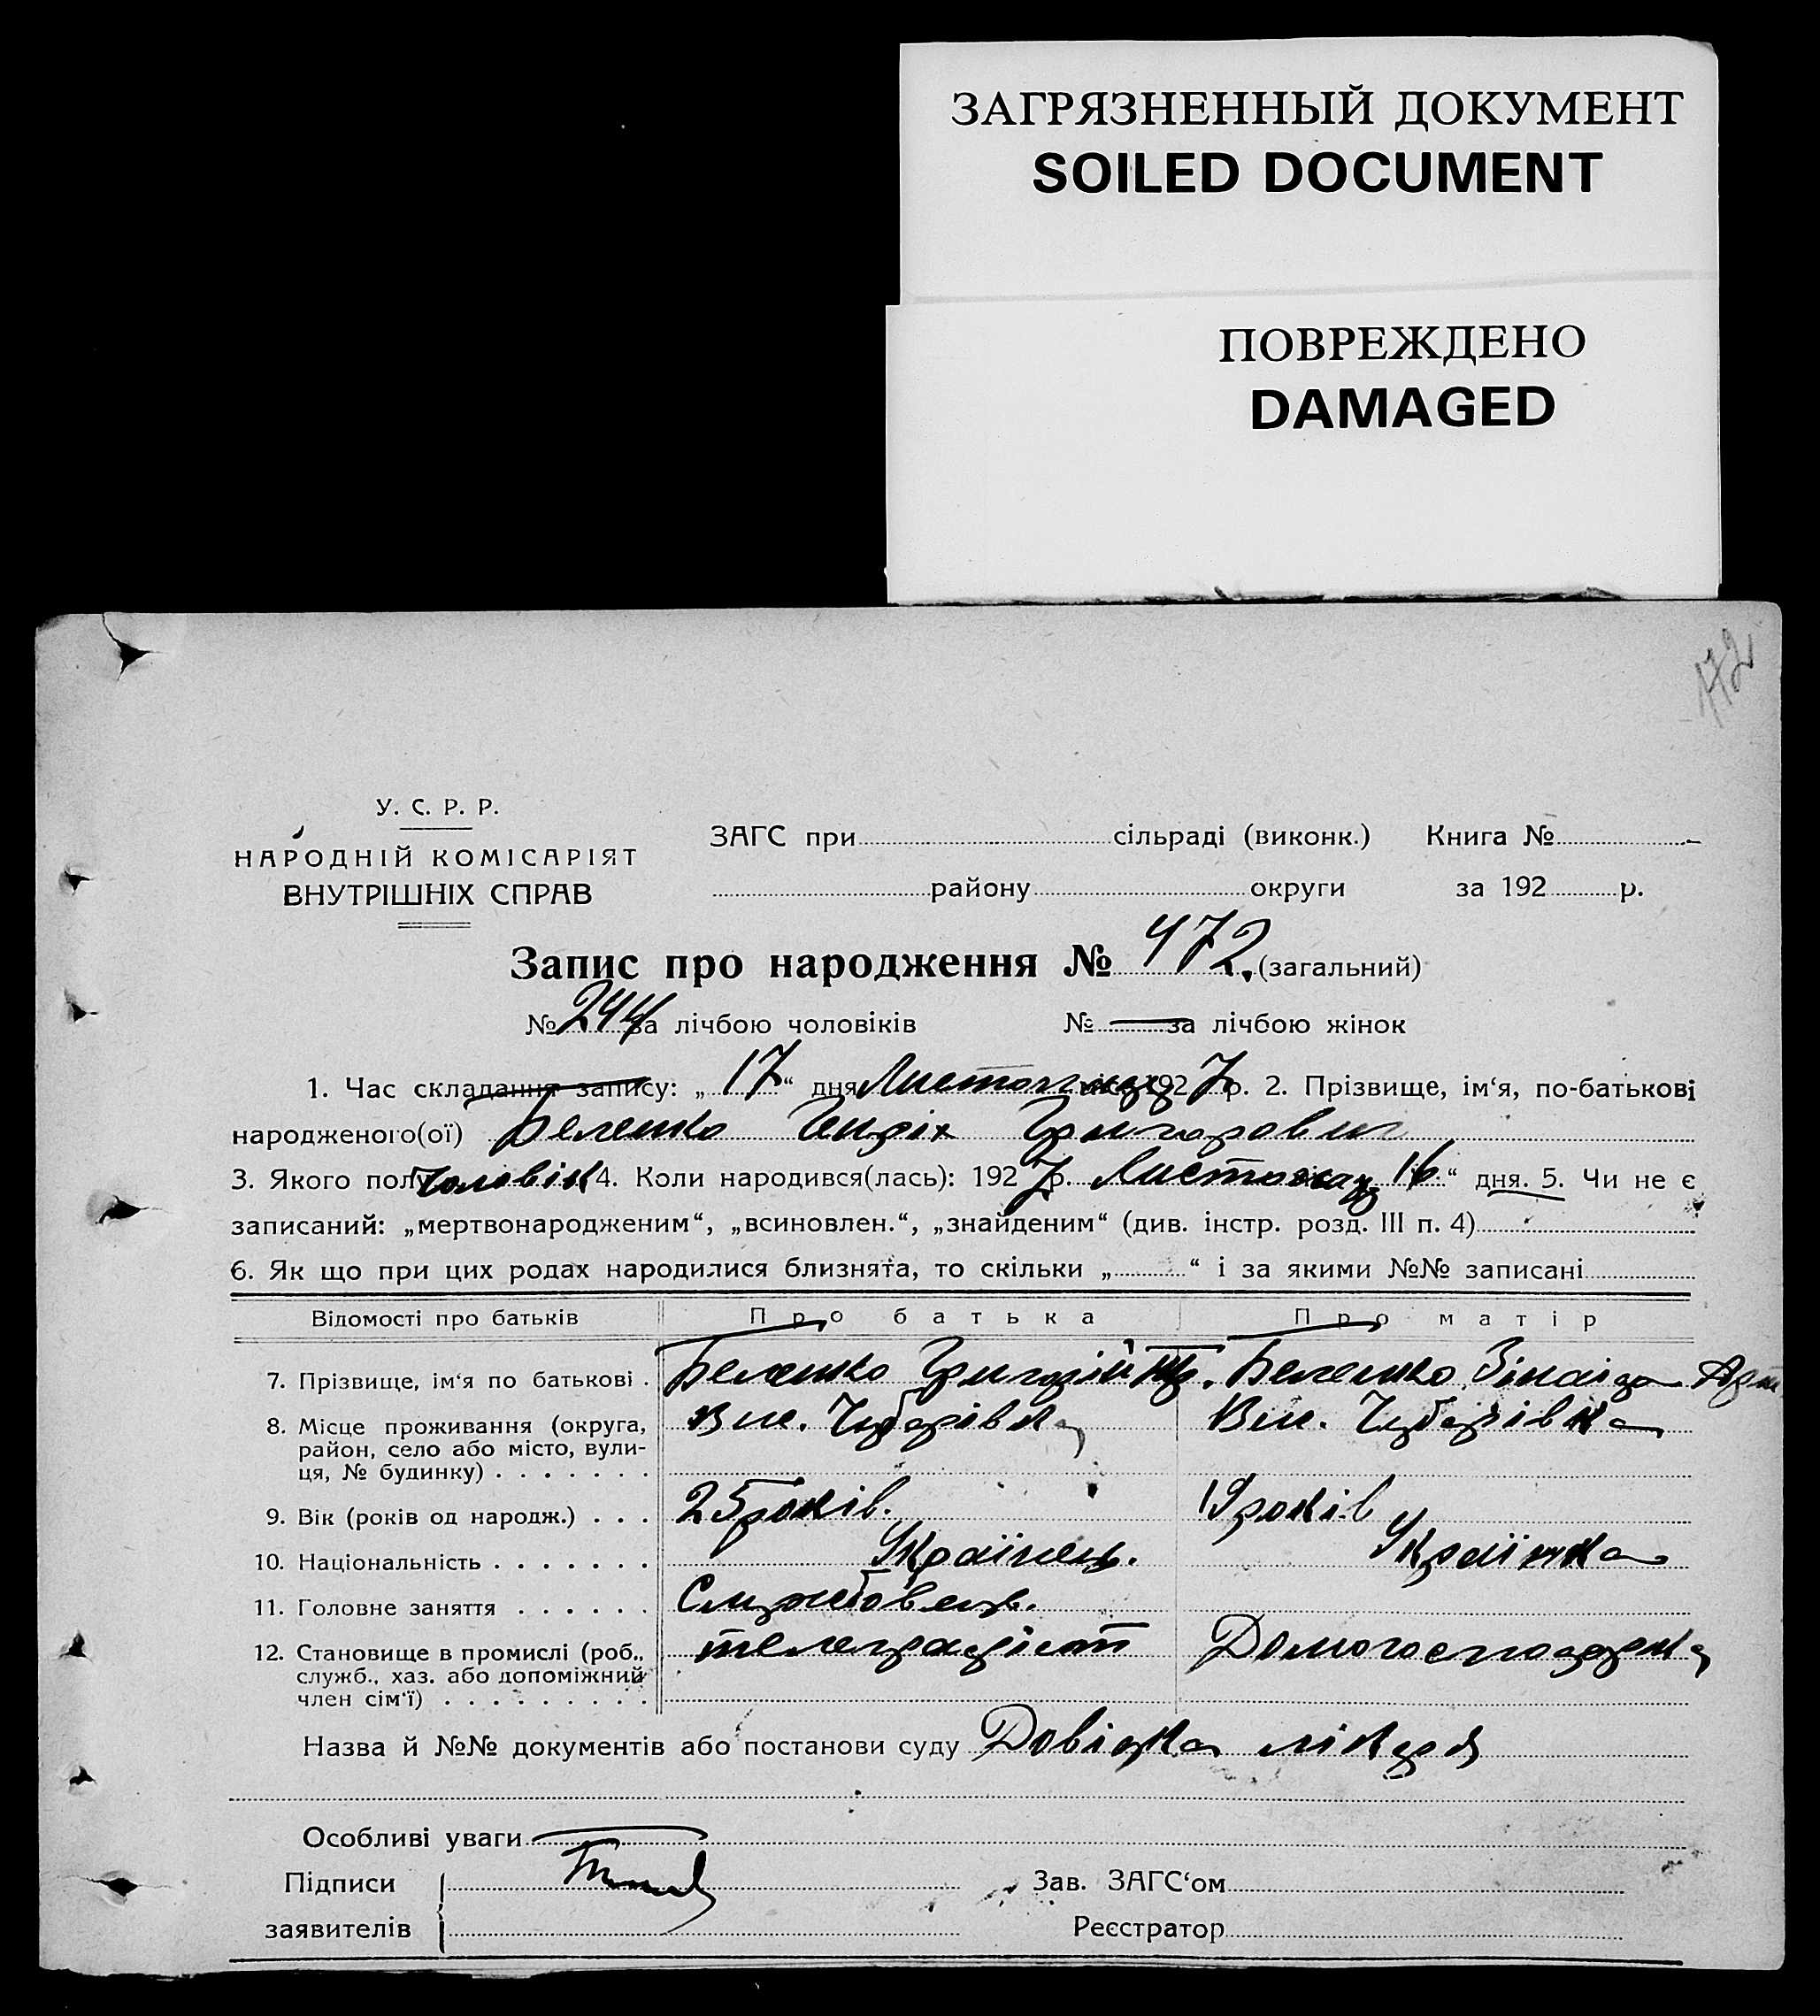 ЗАГРЯЗНЕННЫЙ ДОКУМЕНТ
SOILED DOCUMENT
ПОВРЕЖДЕНО
DAMAGED
472
У. С. Р. Р.
НАРОДНІЙ КОМІСАРІЯТ
ВНУТРІШНІХ СПРАВ
ЗАГС при сільраді (виконк.) Книга №
району округи за 192 р.
Запис про народження № 472. (загальний)
№ 244 за лічбою чоловіків № — за лічбою жінок
1. Час складання запису: „ 17 “ дня Листопада 192 7 р. 2. Прізвище, ім‘я, по-батькові
народженого(ої) Белешко Генріх Григорович
3. Якого полу Чоловік 4. Коли народився(лась): 192 7 р. Листопад 16 “ дня. 5. Чи не є
записаний: „мертвонародженим“, „всиновлен.“, „знайденим“ (див. інстр. розд. III п. 4)
6. Як що при цих родах народилися близнята, то скільки „ “ і за якими №№ записані
Відомості про батьків Про батька Про матір
7. Прізвище, ім‘я по батькові . Белешко Григорій Белешко Зінаїда
8. Місце проживання (округа, В м. Чубарівка В м. Чубарівка
район, село або місто, вули-
ця, № будинку) . . . . . . .
9. Вік (років од народж.) . . . 25 років. 19 років
10. Національність . . . . . . . Українець. Українка
11. Головне заняття . . . . . . Службовець.
12. Становище в промислі (роб., телеграфіст Домогосподарка
служб., хаз. або допоміжний
член сім‘ї) . . . . . . . . .
Назва й №№ документів або постанови суду Довідка лікаря
Особливі уваги
Підписи Зав. ЗАГС‘ом
заявителів Реєстратор